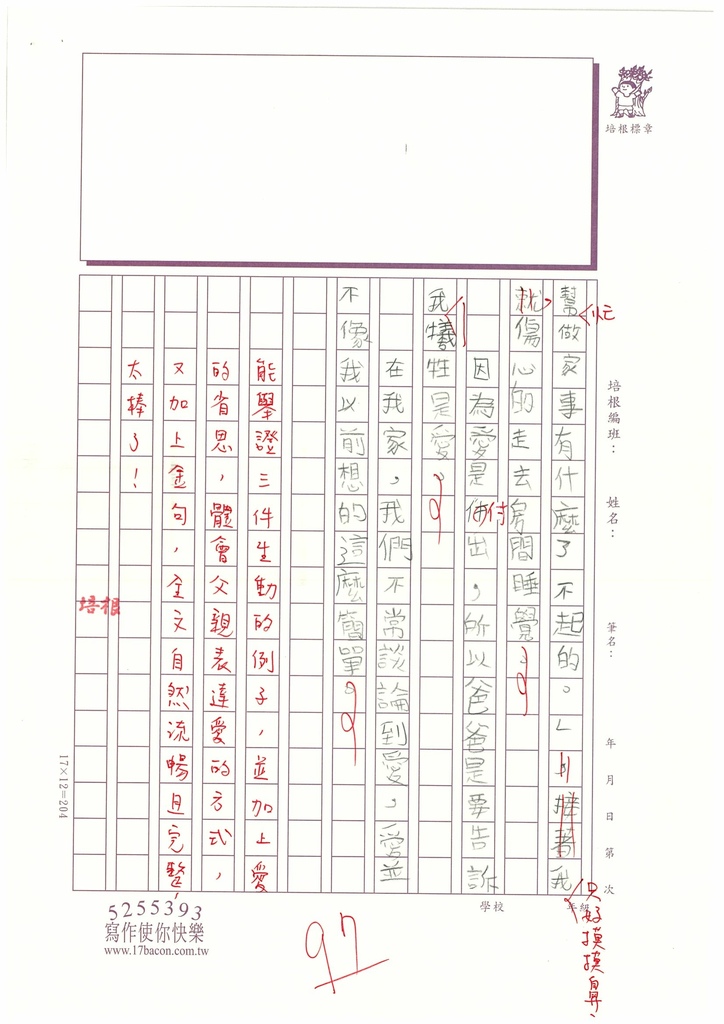 培根標章
培根編班：
姓名：
筆名：
年 月 日 第 次
學校
年級
幫做家事有什麼了不起的。」接著我
忙
只好摸摸鼻、
就傷心的走去房間睡覺。
因為愛是付出，所以爸爸是要告訴
我犧牲是愛。
在我家，我們不常談論到愛，愛並
不像我以前想的這麼簡單。
能舉證三件生動的例子，並加上愛
的省思，體會父親表達愛的方式，
又加上金句，全文自然流暢且完整，
太棒了！
培根
17×12=204
5255393
寫作使你快樂
www.17bacon.com.tw
97